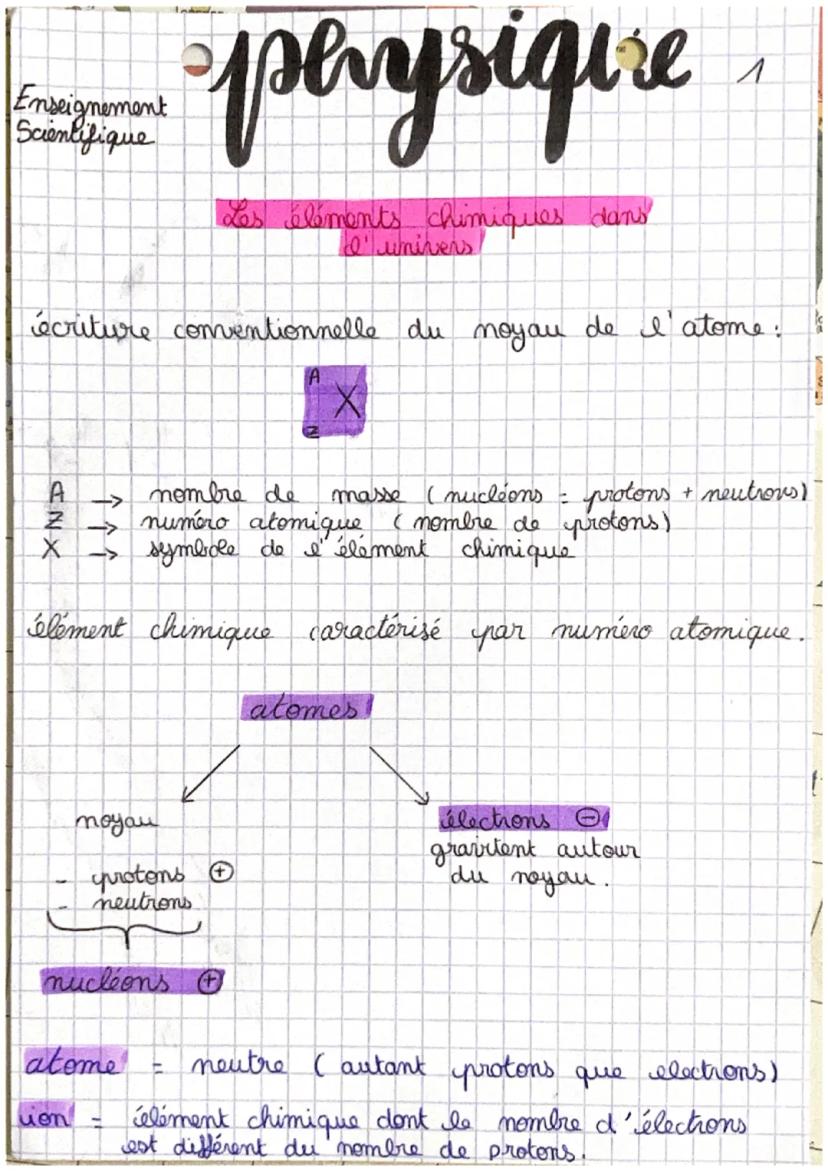 physique 1
Enseignement
Scientifique
Les éléments chimiques dans
l'univers
écriture conventionnelle du noyau de l'atome :
A
X
Z
A → nombre de masse (nucléons = protons + neutrons)
Z → numéro atomique (nombre de protons)
X → symbole de l'élément chimique
élément chimique caractérisé par numéro atomique.
atomes
noyau
électrons ⊖
gravitent autour
du noyau.
- protons ⊕
- neutrons
nucléons ⊕
atome = neutre (autant protons que electrons)
ion = élément chimique dont le nombre d'électrons
est différent du nombre de protons.